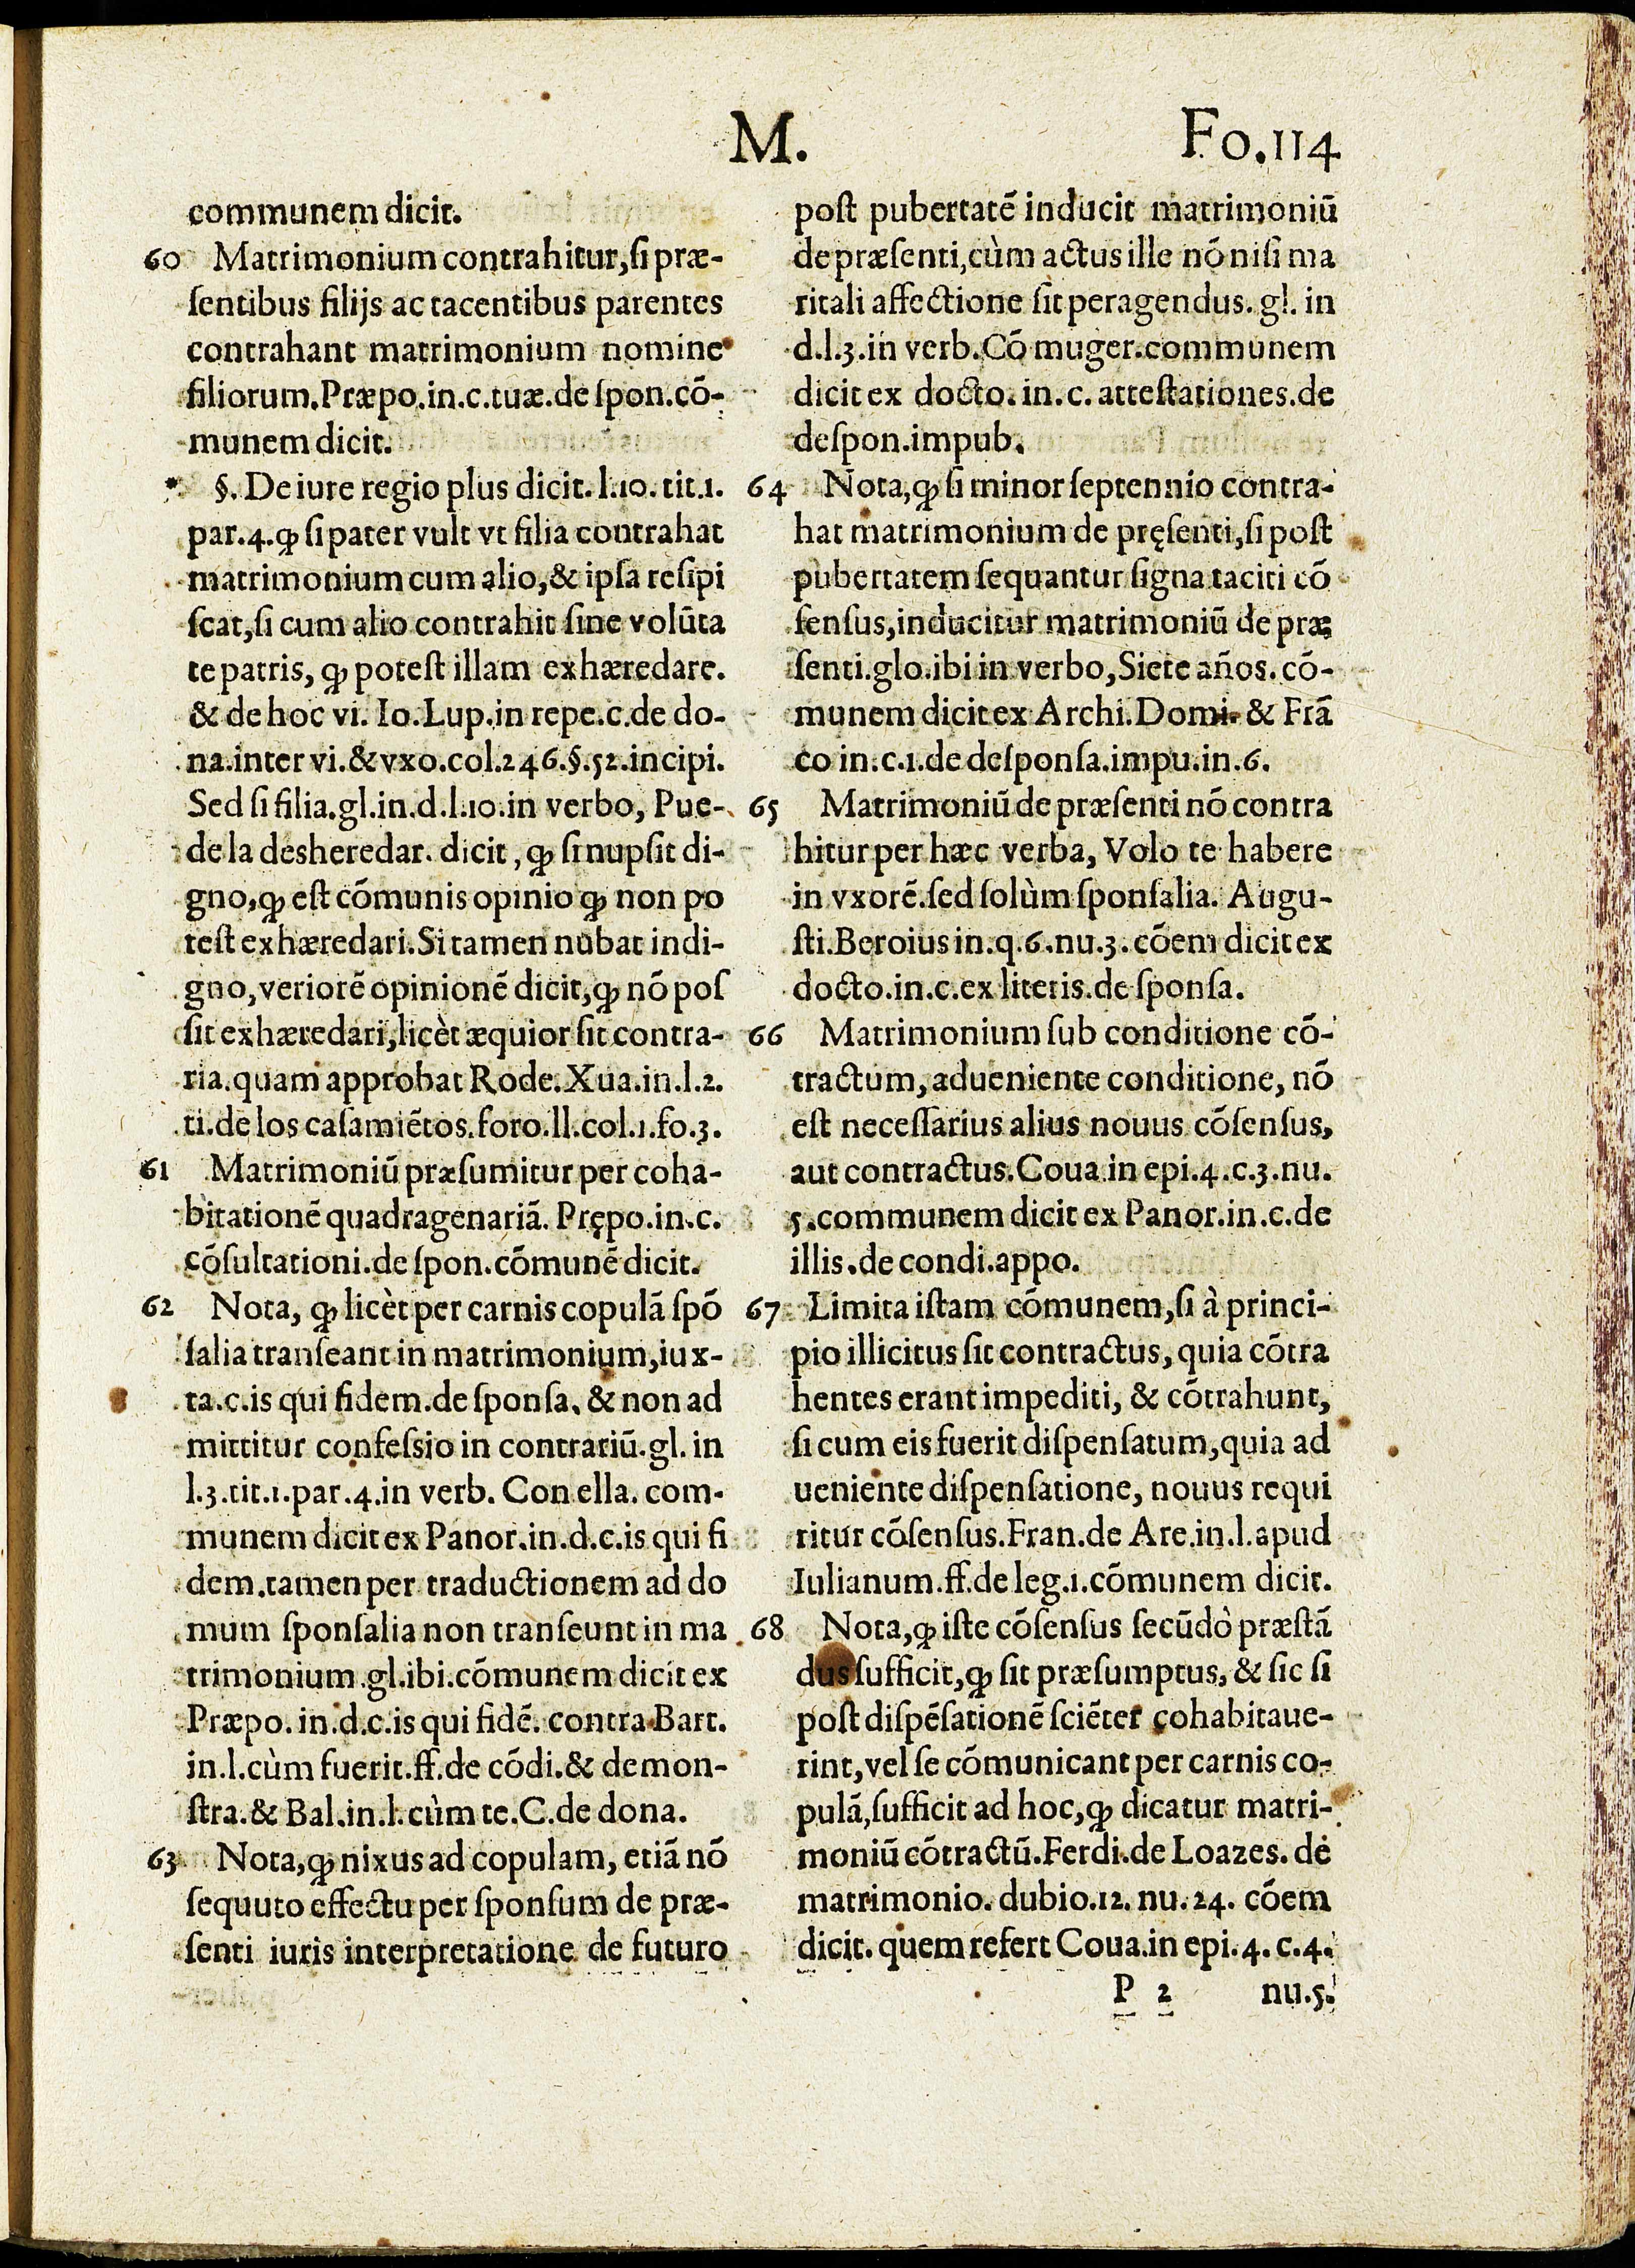 M.
Fo.114
communem dicit.
60 Matrimonium contrahitur, si præ-
sentibus filijs ac tacentibus parentes
contrahant matrimonium nomine
filiorum. Præpo. in. c. tuæ. de spon. cõ-
munem dicit.
* §. De iure regio plus dicit. l. 10. tit. 1.
par. 4. ꝙ si pater vult vt filia contrahat
matrimonium cum alio, & ipsa resipi
scat, si cum alio contrahit sine volũta
te patris, ꝙ potest illam exhæredare.
& de hoc vi. Io. Lup. in repe. c. de do-
na. inter vi. & vxo. col. 246. §. 52. incipi.
Sed si filia. gl. in. d. l. 10. in verbo, Pue-
de la desheredar. dicit, ꝙ si nupsit di-
gno, ꝙ est cõmunis opinio ꝙ non po
test exhæredari. Si tamen nubat indi-
gno, veriorẽ opinionẽ dicit, ꝙ nõ pos
sit exhæredari, licèt æquior sit contra-
ria. quam approbat Rode. Xua. in. l. 2.
ti. de los casamiẽtos. foro. ll. col. 1. fo. 3.
61 Matrimoniũ præsumitur per coha-
bitationẽ quadragenariã. Prępo. in. c.
cõsultationi. de spon. cõmunẽ dicit.
62 Nota, ꝙ licèt per carnis copulã spõ
salia transeant in matrimonium, iux-
ta. c. is qui fidem. de sponsa. & non ad
mittitur confessio in contrariũ. gl. in
l. 3. tit. 1. par. 4. in verb. Con ella. com-
munem dicit ex Panor. in. d. c. is qui fi
dem. tamen per traductionem ad do
mum sponsalia non transeunt in ma
trimonium. gl. ibi. cõmunem dicit ex
Præpo. in. d. c. is qui fidẽ. contra Bart.
in. l. cùm fuerit. ff. de cõdi. & demon-
stra. & Bal. in. l. cùm te. C. de dona.
63 Nota, ꝙ nixus ad copulam, etiã nõ
sequuto effectu per sponsum de præ-
senti iuris interpretatione de futuro
post pubertatẽ inducit matrimoniũ
de præsenti, cùm actus ille nõ nisi ma
ritali affectione sit peragendus. gl. in
d. l. 3. in verb. Cõ muger. communem
dicit ex docto. in. c. attestationes. de
despon. impub.
64 Nota, ꝙ si minor septennio contra-
hat matrimonium de pręsenti, si post
pubertatem sequantur signa taciti cõ
sensus, inducitur matrimoniũ de præ
senti. glo. ibi in verbo, Siete años. cõ-
munem dicit ex Archi. Domi. & Frã
co in. c. 1. de desponsa. impu. in. 6.
65 Matrimoniũ de præsenti nõ contra
hitur per hæc verba, Volo te habere
in vxorẽ. sed solùm sponsalia. Augu-
sti. Beroius in. q. 6. nu. 3. cõem dicit ex
docto. in. c. ex literis. de sponsa.
66 Matrimonium sub conditione cõ-
tractum, adueniente conditione, nõ
est necessarius alius nouus cõsensus,
aut contractus. Coua. in epi. 4. c. 3. nu.
5. communem dicit ex Panor. in. c. de
illis. de condi. appo.
67 Limita istam cõmunem, si à princi-
pio illicitus sit contractus, quia cõtra
hentes erant impediti, & cõtrahunt,
si cum eis fuerit dispensatum, quia ad
ueniente dispensatione, nouus requi
ritur cõsensus. Fran. de Are. in. l. apud
Iulianum. ff. de leg. 1. cõmunem dicit.
68 Nota, ꝙ iste cõsensus secũdò præstã
dus sufficit, ꝙ sit præsumptus, & sic si
post dispẽsationẽ sciẽter cohabitaue-
rint, vel se cõmunicant per carnis co-
pulã, sufficit ad hoc, ꝙ dicatur matri-
moniũ cõtractũ. Ferdi. de Loazes. de
matrimonio. dubio. 12. nu. 24. cõem
dicit. quem refert Coua. in epi. 4. c. 4.
P 2 nu. 5.